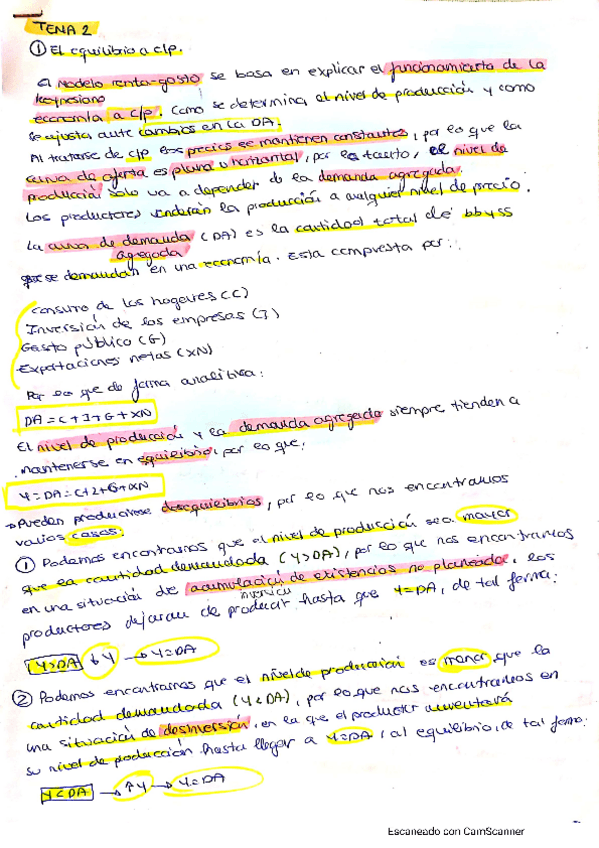 TEMA 2
① El equilibrio a c/p.
El modelo renta-gasto se basa en explicar el funcionamiento de la
keynesiano
economía a c/p. Como se determina el nivel de producción y como
se ajusta ante cambios en la DA.
Al tratarse de c/p los precios se mantienen constantes, por lo que la
curva de oferta es plana u horizontal, por lo tanto, el nivel de
producción solo va a depender de la demanda agregada.
Los productores venderán la producción a cualquier nivel de precio.
La curva de demanda (DA) es la cantidad total de bb y ss
agregada
que se demandan en una economía. Esta compuesta por:
Consumo de los hogares (C)
Inversión de las empresas (I)
Gasto público (G)
Exportaciones netas (XN)
Por lo que de forma analitica:
DA = C+I+G+XN
El nivel de producción y la demanda agregada siempre tienden a
mantenerse en equilibrio, por lo que:
Y=DA=C+I+G+XN
→ Pueden producirse desequilibrios, por lo que nos encontramos
varios casos:
① Podemos encontrarnos que el nivel de producción sea mayor
que la cantidad demandada (Y>DA), por lo que nos encontramos
en una situación de acumulación de existencias no planeada, los
productores dejaran de producir hasta que Y=DA, de tal forma:
Y>DA ↓Y → Y=DA
② Podemos encontrarnos que el nivel de producción es menor que la
cantidad demandada (Y<DA), por lo que nos encontramos en
una situación de desinversión, en la que el productor aumentará
su nivel de producción hasta llegar a Y=DA, al equilibrio, de tal forma:
Y<DA → ↑Y → Y=DA
Escaneado con CamScanner